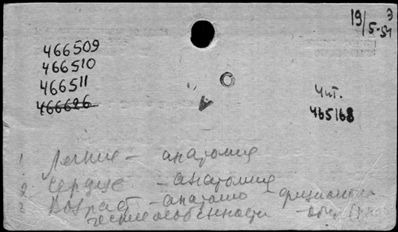 19/5-51 Э
466509
466510
466511
466626
Чит.
465168
1 Легкие - анатомия
2 Сердце - анатомия
3 Возраст - анатомо - физиологи
ческие особенности